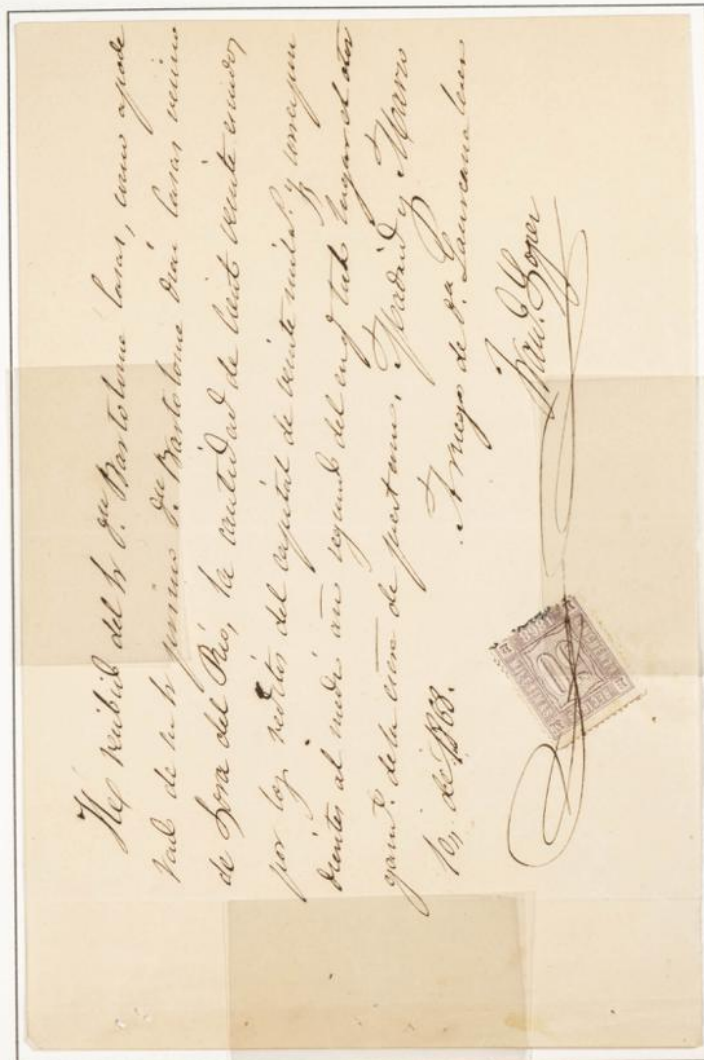 He recibido del Sr. Dn. Bartolomé Lasas, como apode
rado de su Sr. primo Dn. Bartolomé Lasas vecino
de Lora del Rio, la cantidad de ciento veinte escudos
por los reditos del capital de veinte mil r. y correspon
dientes al medio año segundo del en q. tubo lugar el otor
gam.to de la de prestamo. Madrid y Marzo
de 1868.
A ruego de Da. Laureana
Fran.co Lopez